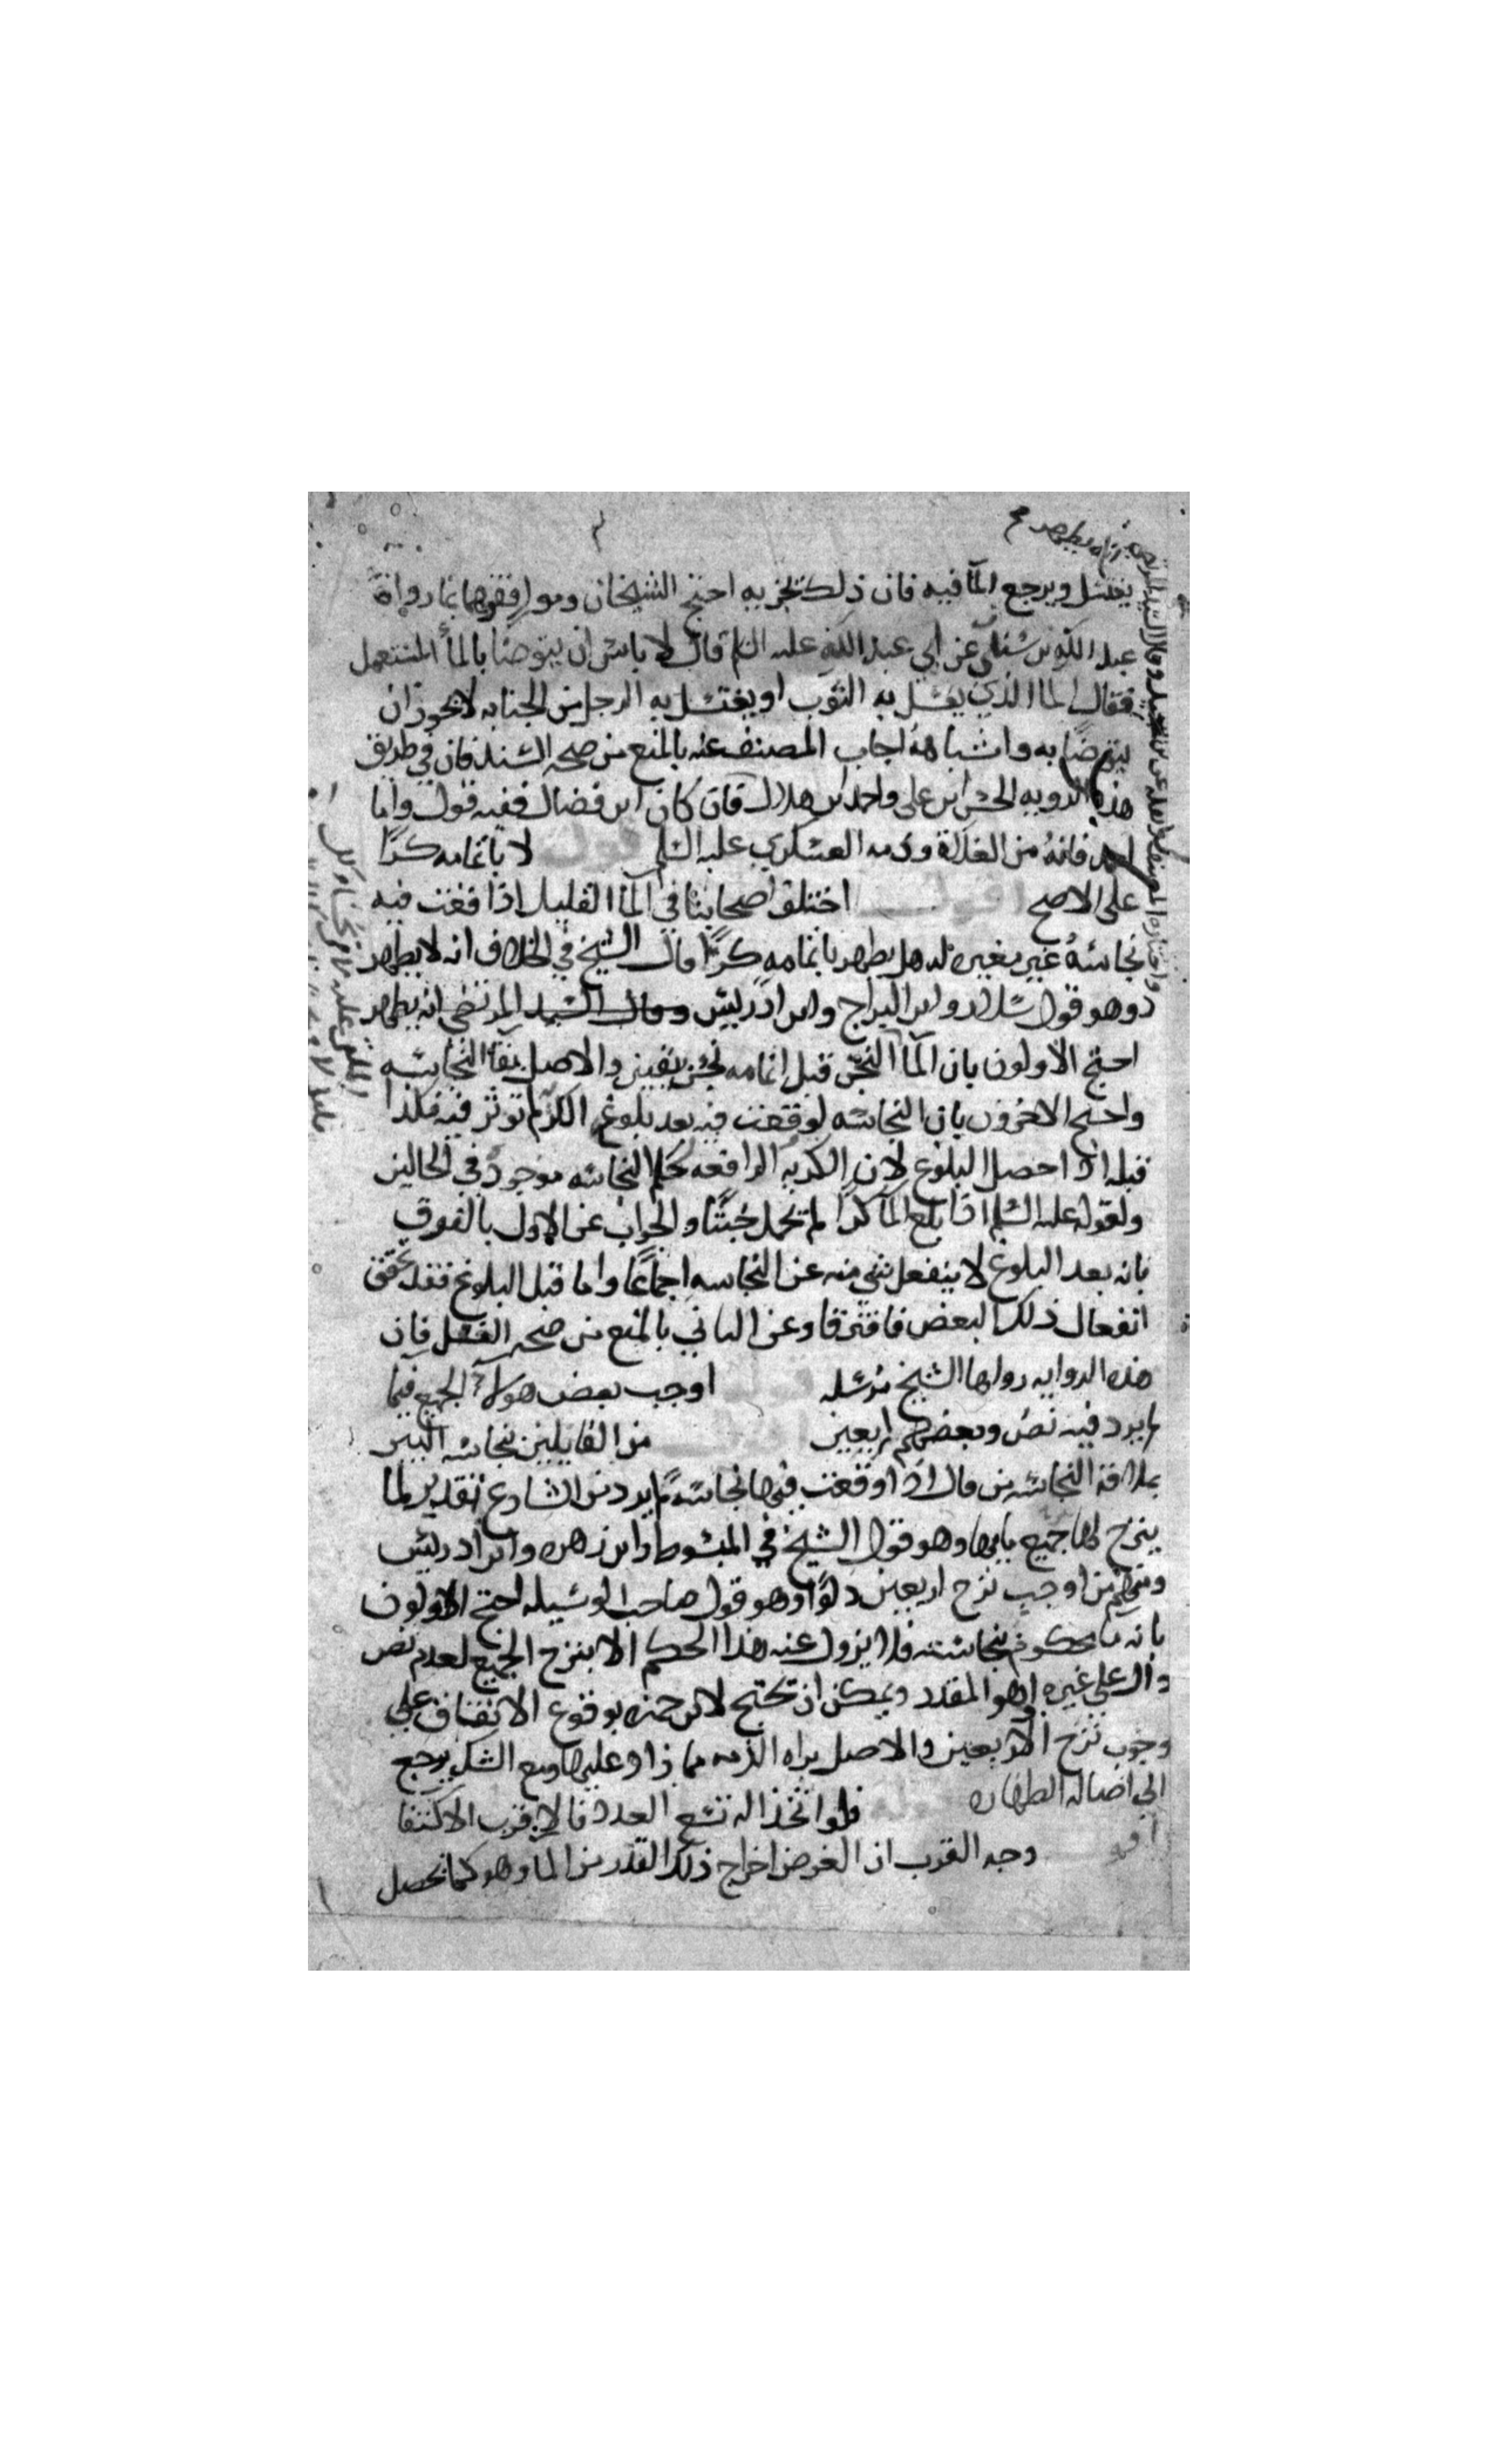 يغتسل ويرجع المآ فيه فان ذلك تجزيه احتج الشيخان وموافقوهما بما رواه
عبد الله بن سنان عن ابي عبد الله عليه السلم قال لا باس ان يتوضا بالمآ المستعمل
فقال الما الذي يغسل به الثوب او يغتسل به الرجل من الجنابه لا يجوز ان
يتوضا به واشباهه اجاب المصنف عنه بالمنع من صحه السند فان في طريق
هذه الروايه الحسن ابن علي واحمد ابن هلال فان كان ابن فضال ففيه قول واما
احمد فانه من الغلاة وذمه العسكري عليه السلم قوله لا باتمامه كرا
على الاصح اقول اختلف اصحابنا في المآ القليل اذا وقعت فيه
نجاسة غير مغيره له هل يطهر باتمامه كرا قال الشيخ في الخلاف انه لا يطهر
وهو قول سلار وابن البراج وابن ادريس وقال السيد المرتضى انه يطهر
احتج الاولون بان المآ النجس قبل اتمامه نجس بيقين والاصل بقا النجاسه
واحتج الاخرون بان النجاسه لو وقعت فيه بعد بلوغ الكر لم توثر فيه فكذا
قبله اذا حصل البلوغ لان الكريه الرافعه لحكم النجاسه موجود في الحالين
ولقوله عليه السلم اذا بلغ المآ كرا لم تحمل خبثا والجواب عن الاول بالفرق
بانه بعد البلوغ لا ينفعل شي منه عن النجاسه اجماعا واما قبل البلوغ فقد تحقق
انفعال ذلك البعض فافترقا وعن الثاني بالمنع من صحه النقل فان
هذه الروايه رواها الشيخ مرسله قوله اوجب بعض هولآ الجميع فيما
لم يرد فيه نص وبعضهم اربعين اقول من القايلين بنجاسه البير
بملاقة النجاسه من قال اذا وقعت فيها نجاسة لم يرد من الشارع تقدير لما
ينزح لها جميع مايها وهو قول الشيخ في المبسوط وابن زهره وابن ادريس
ومنهم من اوجب نزح اربعين دلوا وهو قول صاحب الوسيله احتج الاولون
بانه ما محكوم بنجاسته فلا يزول عنه هذا الحكم الا بنزح الجميع لعدم نص
دال على غيره اذ هو المقدر ويمكن ان تحتج لابن حمزه بوقوع الاتفاق على
وجوب نزح الاربعين والاصل براه الذمه مما زاد عليها ومع الشك يرجع
الى اصاله الطهاره قوله فلو اتخذ اله تسع العدد فالاقرب الاكتفا
اقول وجه القرب ان الغرض اخراج ذلك القدر من الما وهو كما يحصل